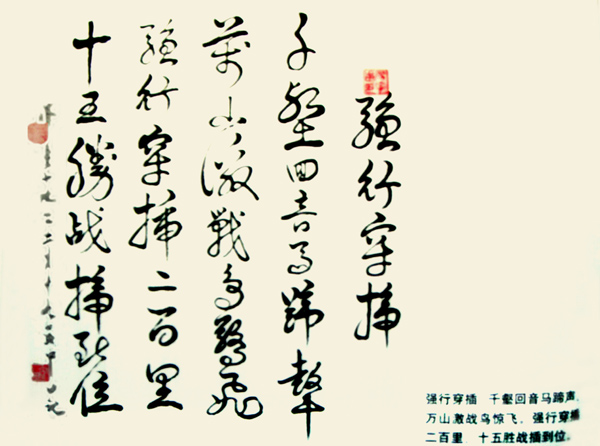 强行穿插
千壑回音马蹄聲
萬山激戰鸟驚飛
强行穿插二百里
十五勝战插到位
强行穿插 千壑回音马蹄声,
万山激战鸟惊飞,强行穿插
二百里,十五胜战插到位。